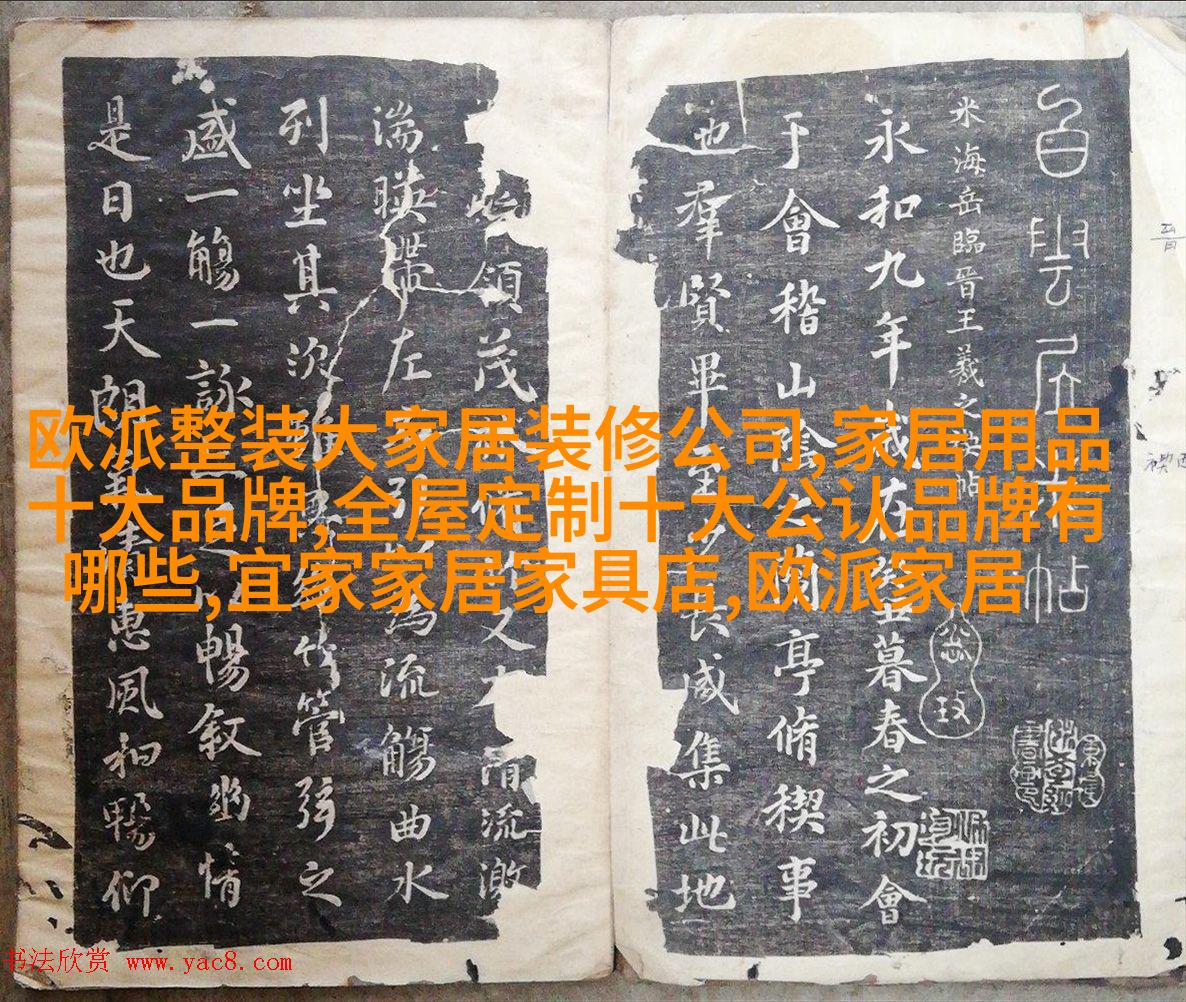 米海岳臨晉王羲之禊帖
永和九年歲在癸丑暮春之初會
于會稽山陰之蘭亭脩稧事
也羣賢畢至少長咸集此地
領茂
又有清流激
湍暎帶左右引以為流觴曲水
列坐其次雖無絲竹管弦之
盛一觴一詠亦足以暢叙幽情
是日也天朗氣清惠風和暢仰
欧派整装大家居装修公司,家居用品
十大品牌,全屋定制十大公认品牌有
哪些,宜家家居家具店,欧派家居
书法欣赏 www.yac8.com